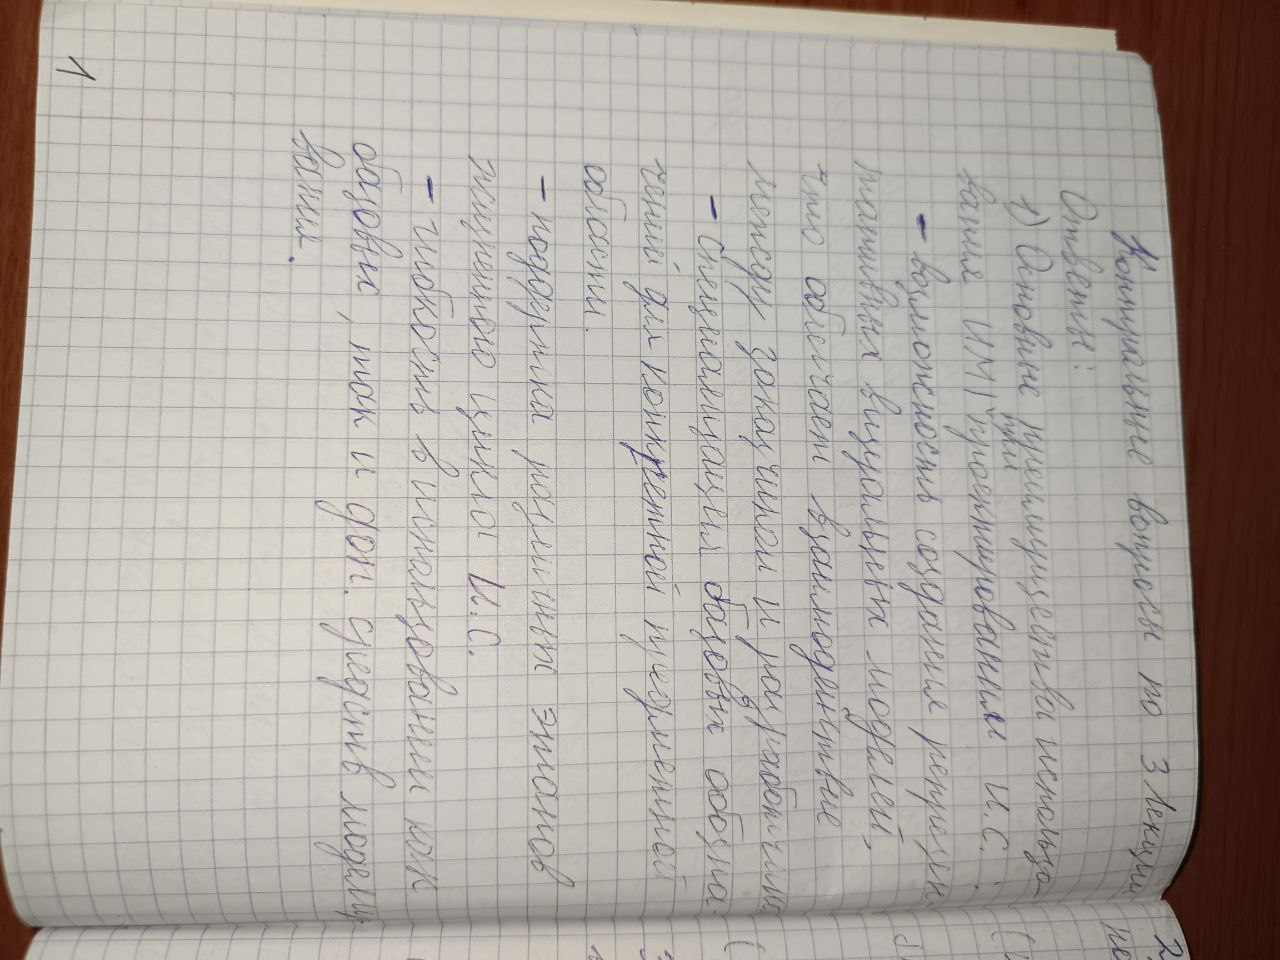 Контрольные вопросы по 3 Лекции
Ответы:
1) Основные преимущества использо
вания UML при проектирования И.С.:
- возможность создания репрезен
тативных визуальных моделей,
что облегчает взаимодействие
между заказчиком и разработчик
- специализация базовых обозна-
чений для конкретной предметной
области.
- поддержка различных этапов
жизненного цикла И.С.
- гибкость в использовании как
базовых, так и доп. средств модели
вания.
1